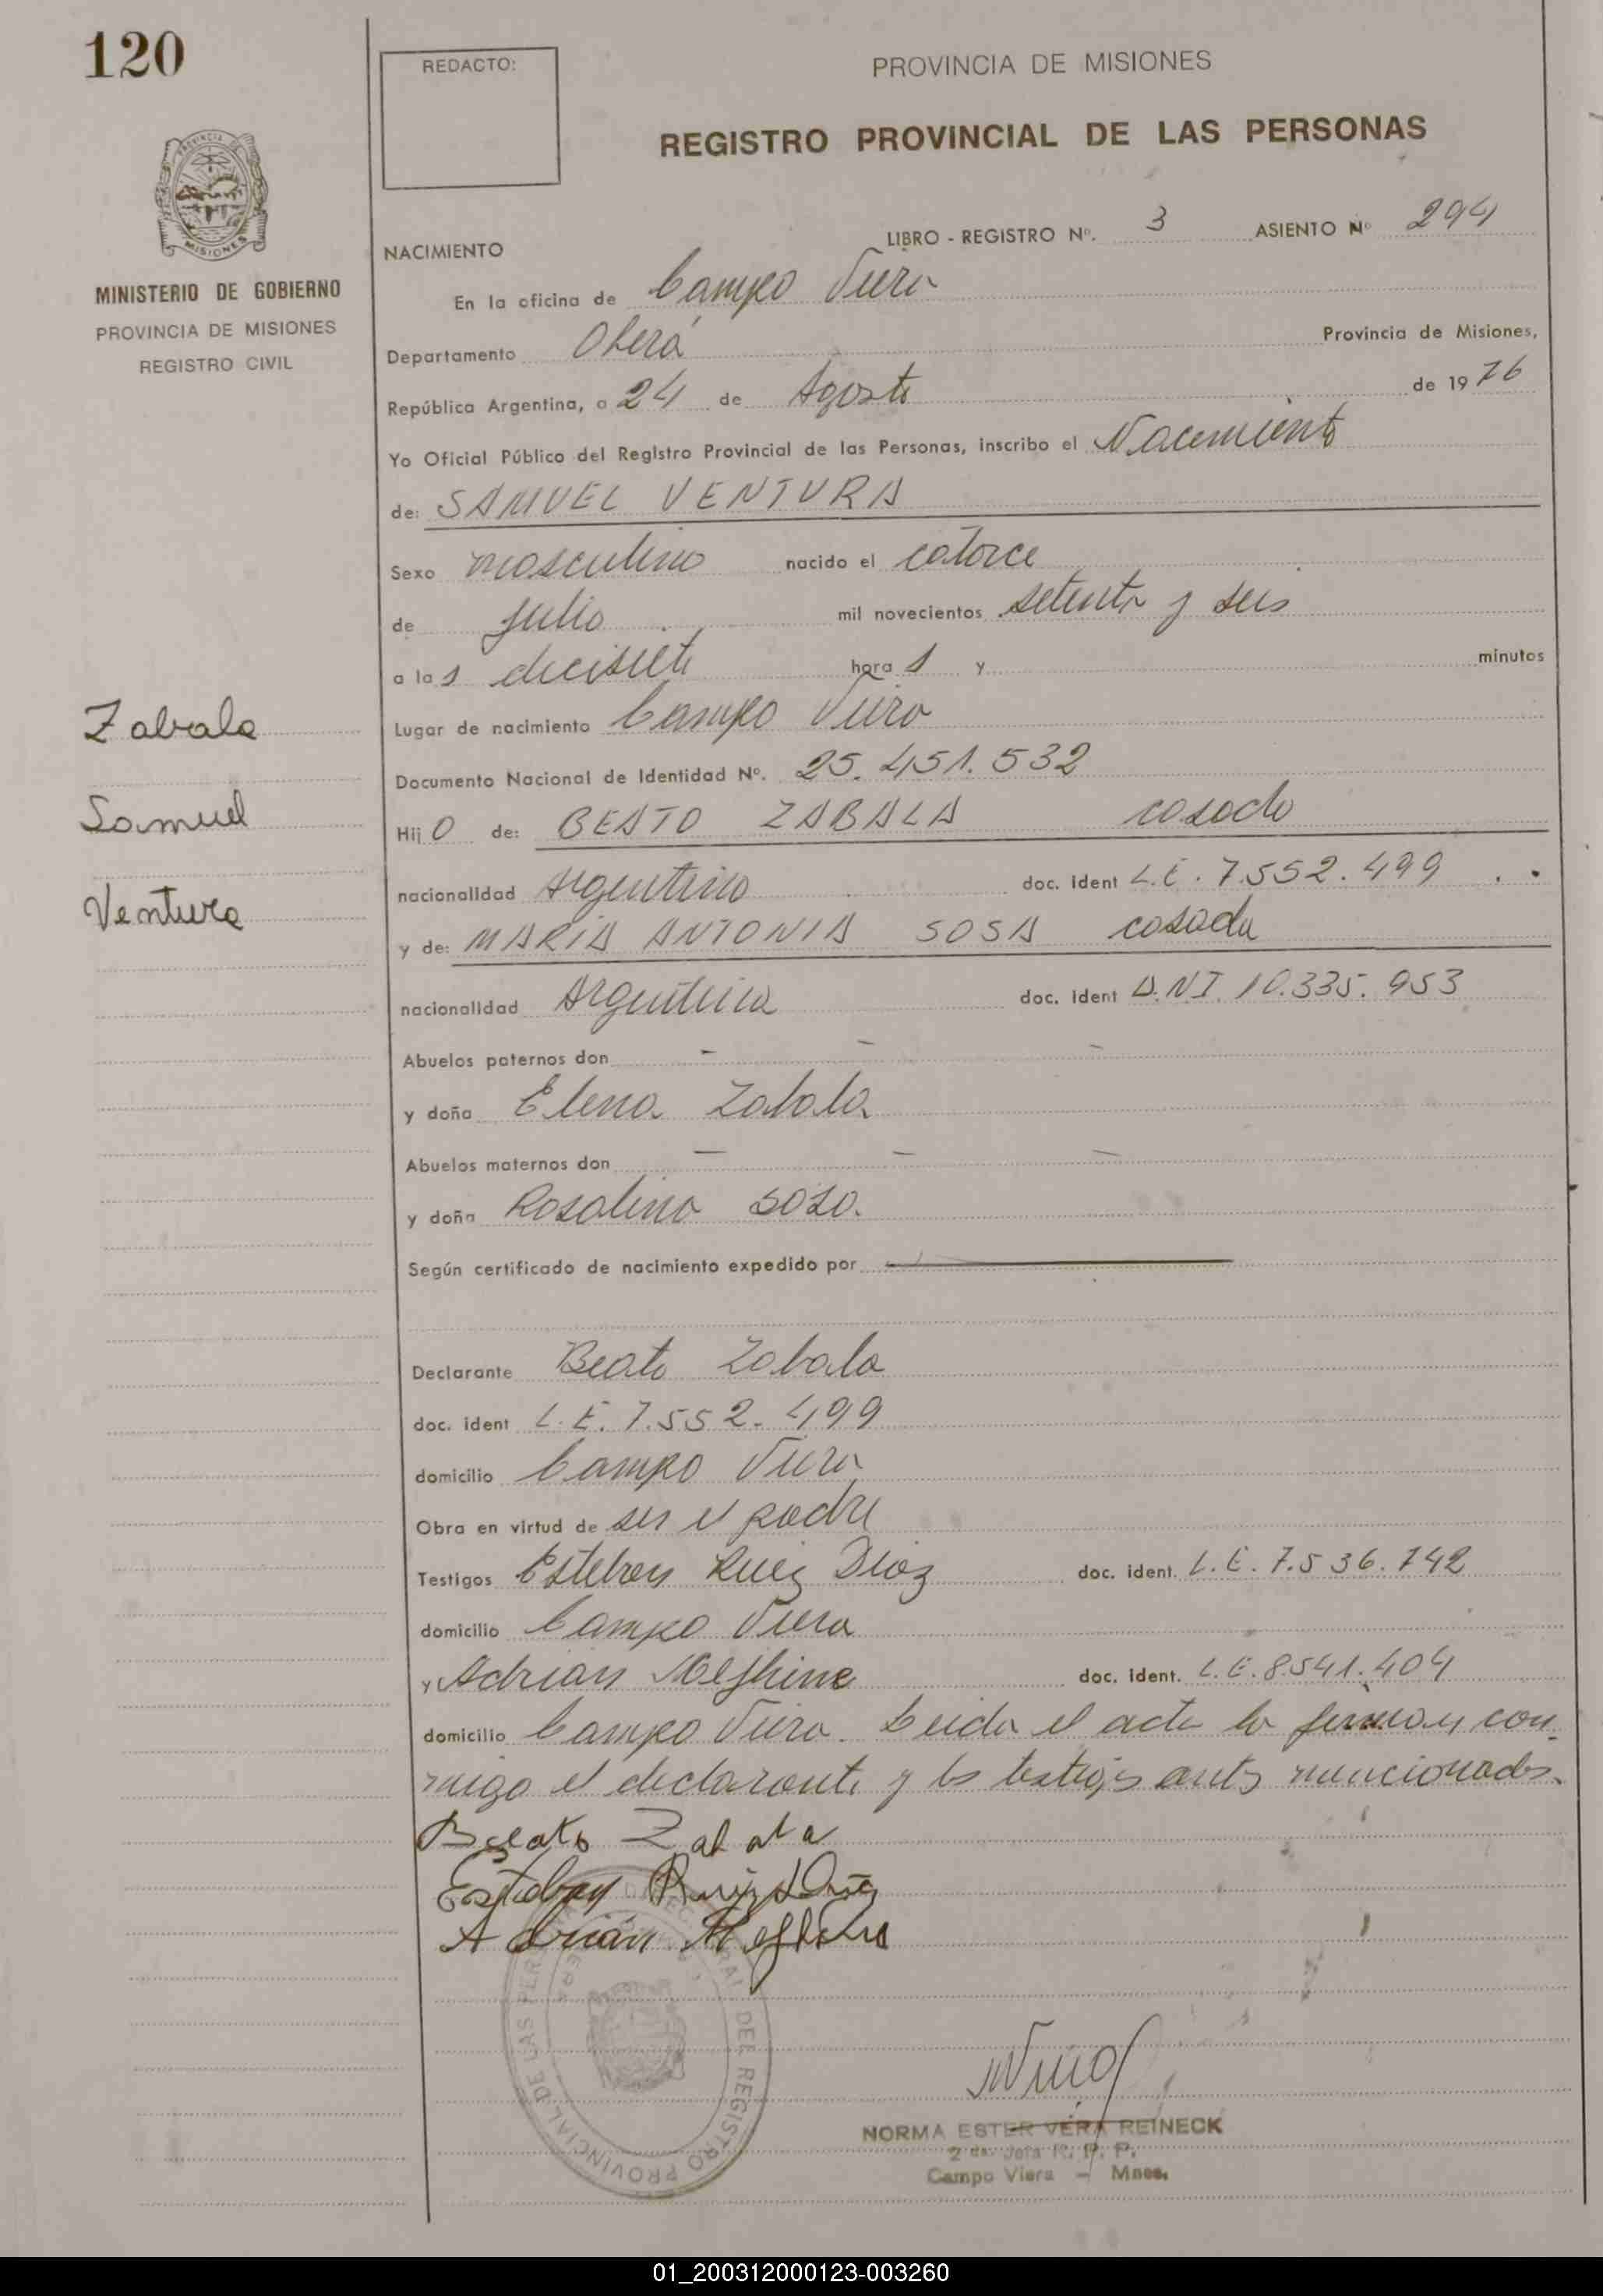 120
REDACTO:
PROVINCIA DE MISIONES
REGISTRO PROVINCIAL DE LAS PERSONAS
MISIONES
MINISTERIO DE GOBIERNO
PROVINCIA DE MISIONES
REGISTRO CIVIL
LIBRO - REGISTRO Nº. 3 ASIENTO Nº 294
NACIMIENTO
En la oficina de Campo Viera
Departamento Oberá Provincia de Misiones,
República Argentina, a 24 de Agosto de 1976
Yo Oficial Público del Registro Provincial de las Personas, inscribo el Nacimiento
de: SAMUEL VENTURA
Sexo masculino nacido el catorce
de Julio mil novecientos setenta y seis
a las diecisiete horas y minutos
Zabala
Lugar de nacimiento Campo Viera
Documento Nacional de Identidad Nº. 25.451.532
Samuel
Hijo de: BEATO ZABALA casado
nacionalidad Argentino doc. ident L.E. 7.552.499
Ventura
y de: MARIA ANTONIA SOSA casada
nacionalidad Argentina doc. ident D.N.I. 10.335.953
Abuelos paternos don - - -
y doña Elena Zabala
Abuelos maternos don - - -
y doña Rosalina Sosa.
Según certificado de nacimiento expedido por
Declarante Beato Zabala
doc. ident L.E. 7.552.499
domicilio Campo Viera
Obra en virtud de ser el padre
Testigos Esteban Ruiz Diaz doc. ident. L.E. 7.536.742
domicilio Campo Viera
y Adrian doc. ident. L.E. 8.541.404
domicilio Campo Viera. Leida el acta la firman con-
migo el declarante y los testigos antes mencionados.
Beato Zabala
Esteban Ruiz Diaz
Adrián
DEL REGISTRO PROVINCIAL DE LAS
NORMA ESTER VERA REINECK
2 da. Jefa R. P. P.
Campo Viera - Mnes.
01_200312000123-003260